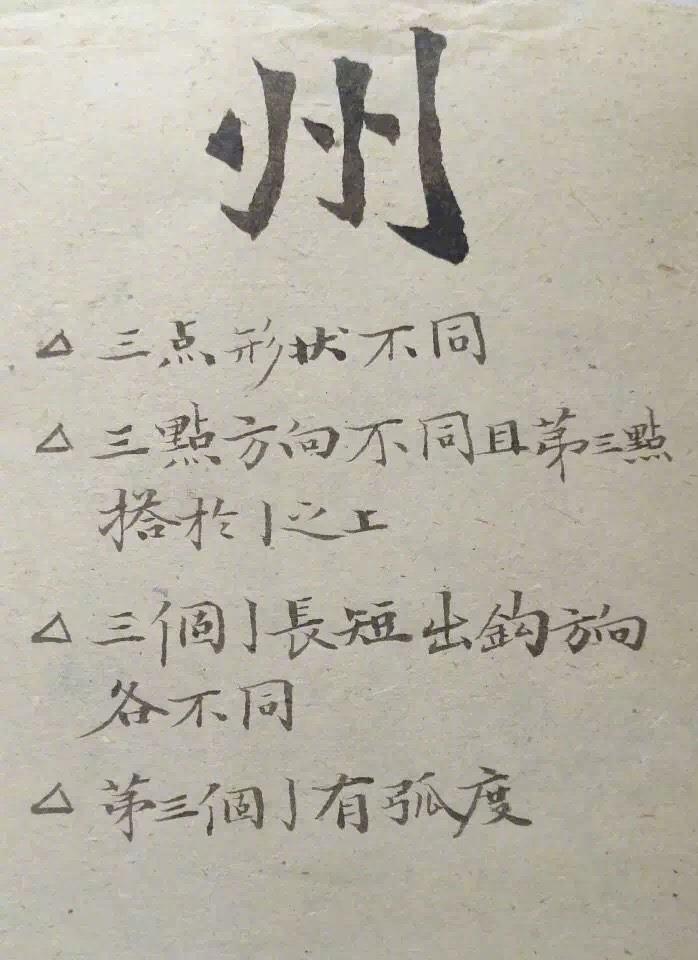 州
△ 三点形狀不同
△ 三點方向不同且第三點
搭於亅之上
△ 三個亅長短出鈎方向
各不同
△ 第三個亅有弧度